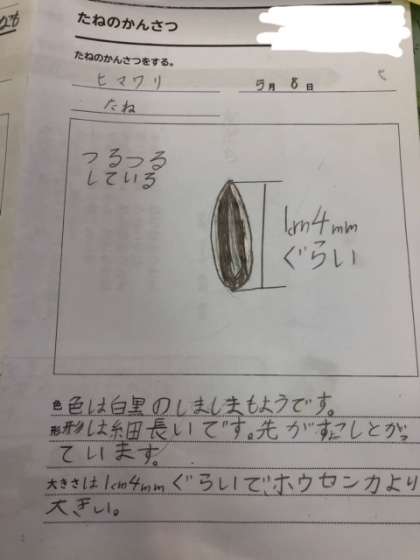 たねのかんさつ
たねのかんさつをする。
ヒマワリ
5月8日
たね
つるつる
している
1cm4mm
ぐらい
色 色は白黒のしましまもようです。
形 形は細長いです。先がすこしとがっ
ています。
大きさは1cm4mmぐらいで、ホウセンカより
大きい。